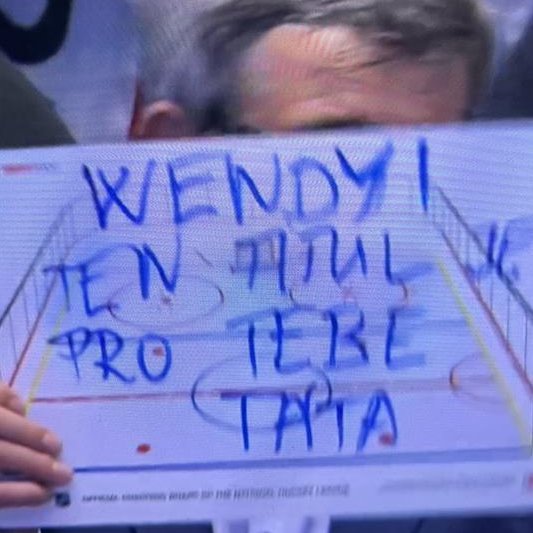 WENDY!
TEN TITUL JE
PRO TEBE
TATA
OFFICIAL COACHING BOARD OF THE NATIONAL HOCKEY LEAGUE